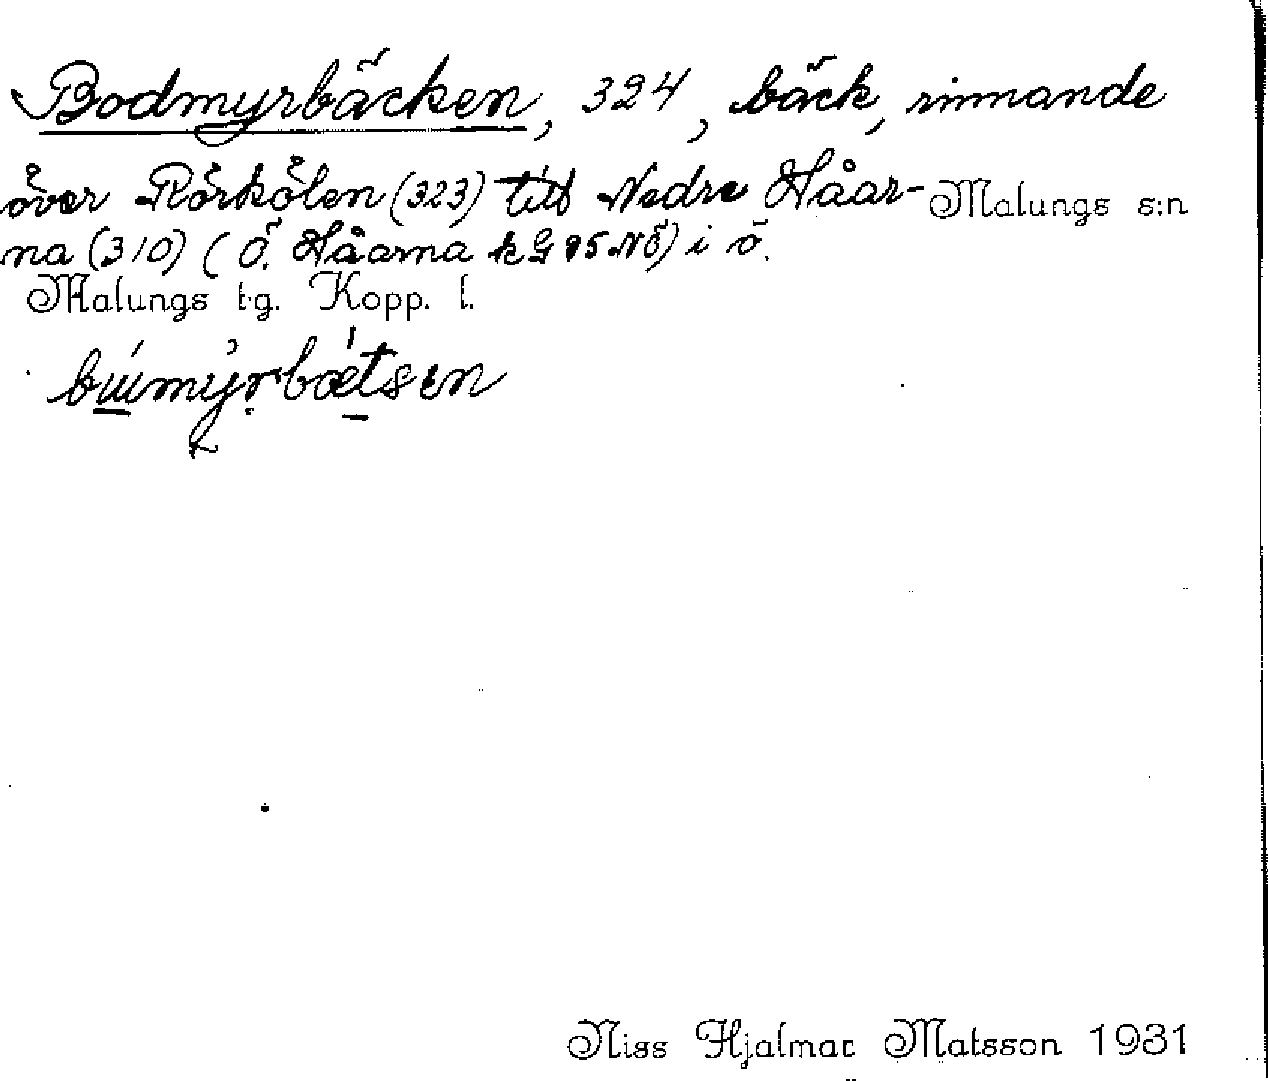 Bodmyrbäcken, 324, bäck, rinnande
över Rörkölen (323) till Nedre Håar- Malungs s:n
na (310) (Ö. Håarna kG 95 NÖ) i ö.
Malungs t.g. Kopp. l.
Niss Hjalmar Matsson 1931